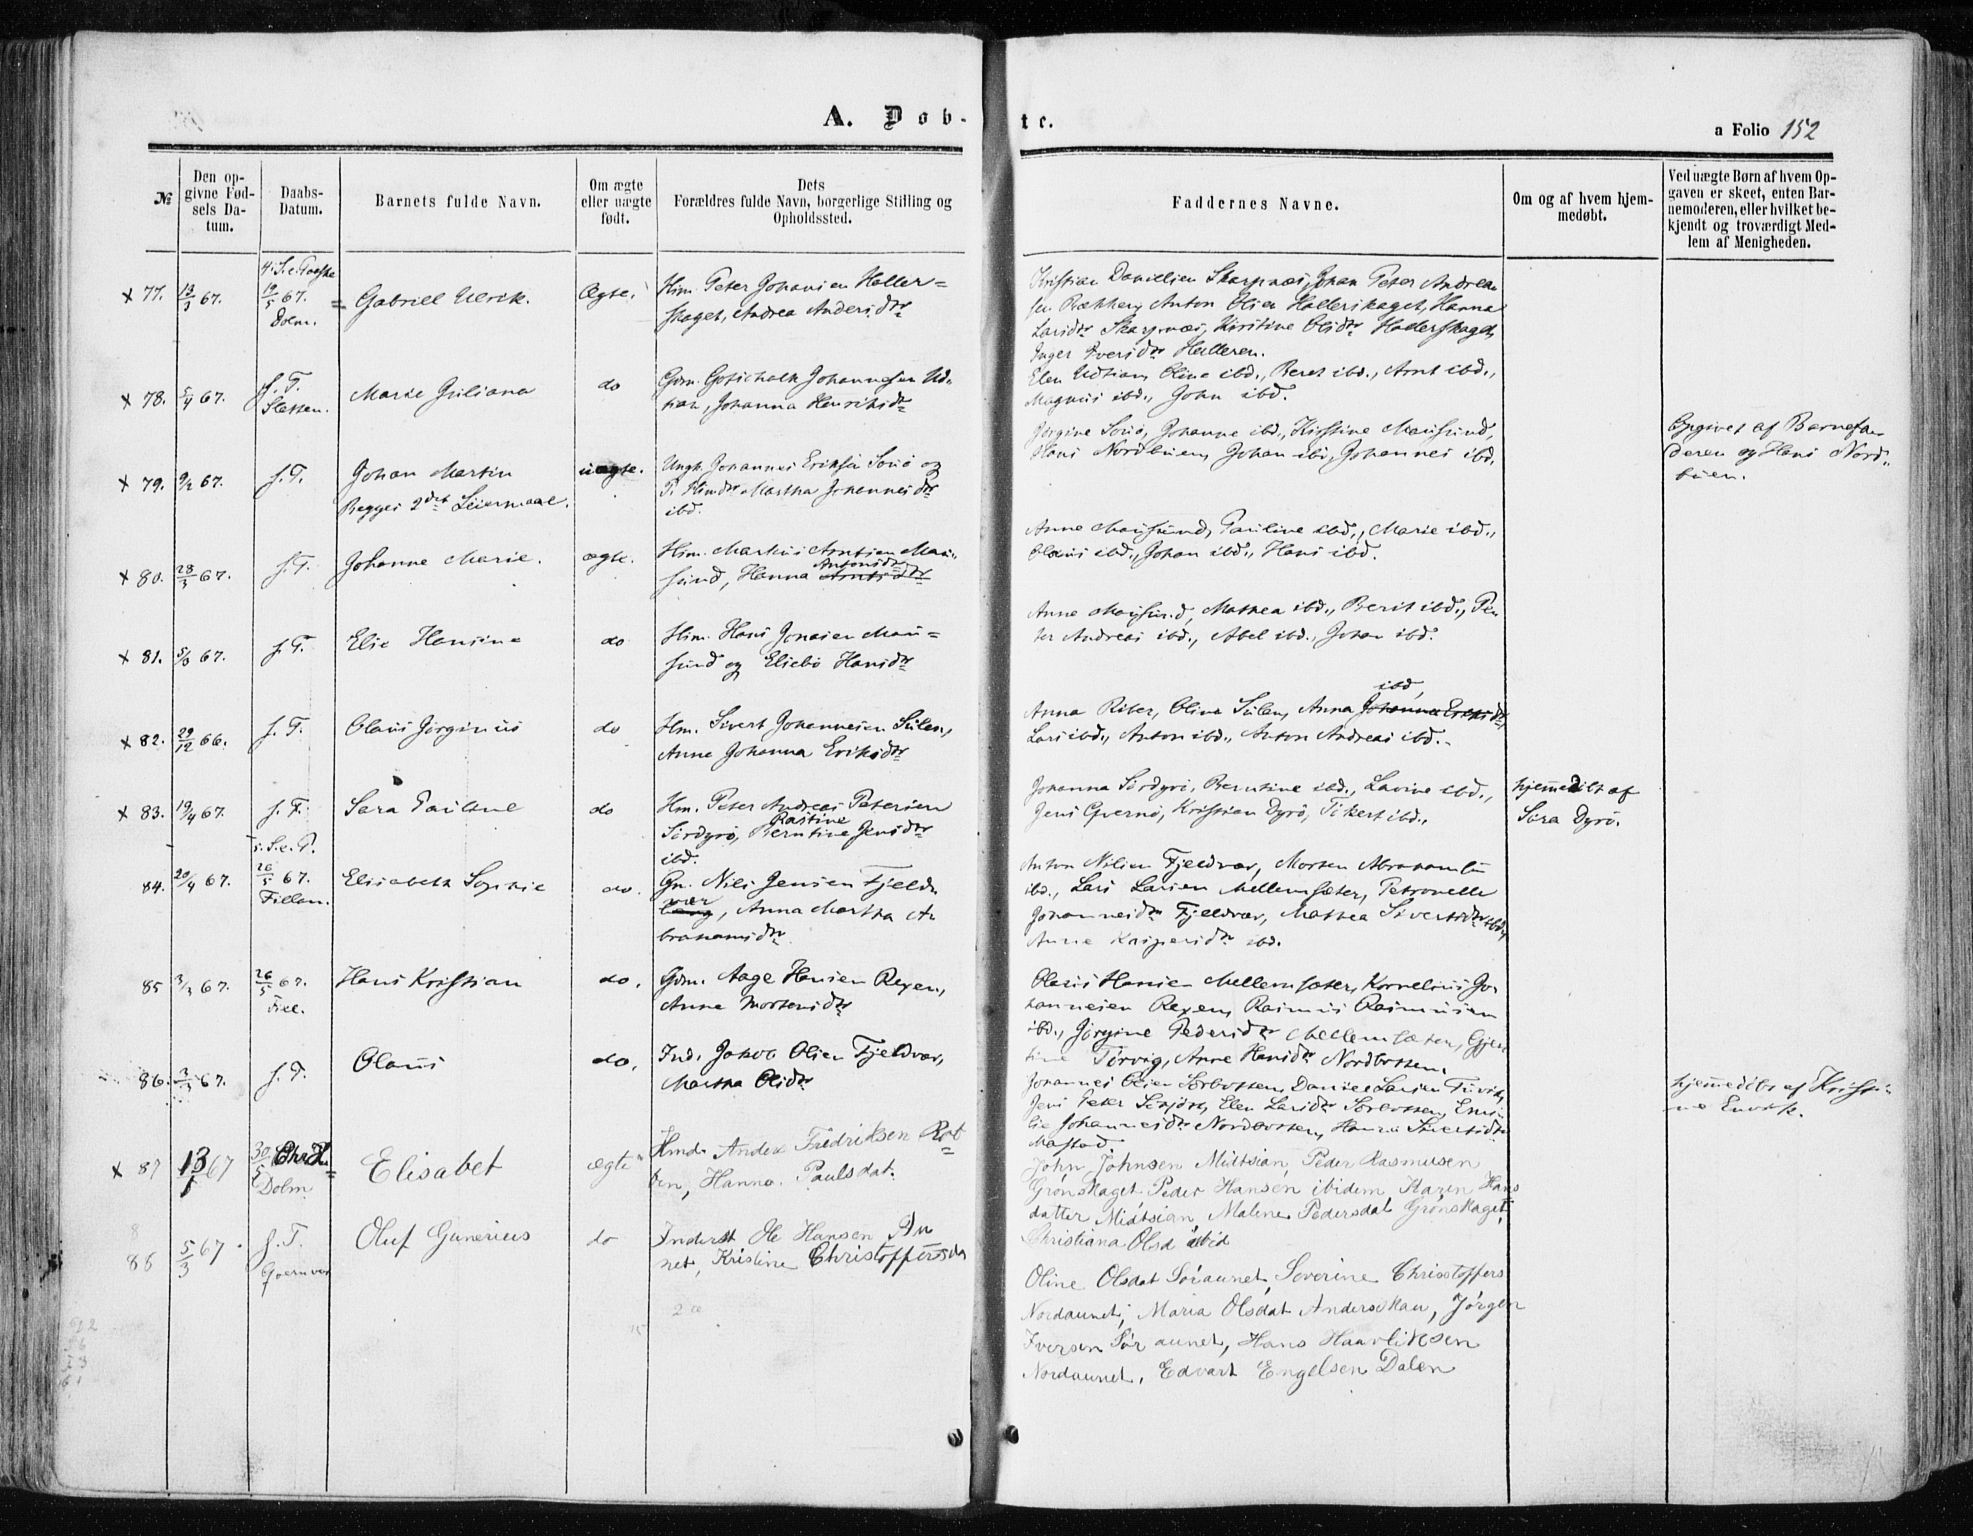 A. Døb-
te.
a Folio 152
№
Den op-
givne Fød-
sels Da-
tum.
Daabs-
Datum.
Barnets fulde Navn.
Om ægte
eller uægte
født.
Dets
Forældres fulde Navn, borgerlige Stilling og
Opholdssted.
Faddernes Navne.
Om og af hvem hjem-
medøbt.
Ved uægte Børn af hvem Op-
gaven er skeet, enten Bar-
nemoderen, eller hvilket be-
kjendt og troværdigt Med-
lem af Menigheden.
4. S. e. Paaske
x 77. 13/3 67. 19/5 67. Gabriel Ulrik. Ægte. Hm. Peter Johansen Haller=
Dolm. skaget, Andrea Andersdtr
Kristian Danielsen Skarpnæs, Johan Peter Andrea
sen Bekken, Anton Olsen Hallerskaget, Hanna
Larsdtr Skarpnæs, Kirstine Olsdtr Hallerskaget,
Inger Iversdtr Halleren.
x 78. 5/4 67. s. T. Marie Juliana do Gdm. Gotschalk Johannesen Ud-
Sletten. tian, Johanna Henriksdtr
Elen Udtian, Oline ibd., Beret ibd., Arnt ibd.,
Magnus ibd., John ibd.
x 79. 9/2 67. s. T. Johan Martin uægte. Ungk. Johannes Eriksen Sorø og
Begges 2det Leiermaal. P. Hmdtr Martha Johannesdtr
ibd.
Jørgine Sorø, Johanne ibd., Kirstine Mausund,
Hans Nordbuen, Johan ibd., Johannes ibd.
Opgivet af Barnefa-
deren og Hans Nord-
buen.
x 80. 28/3 67. s. T. Johanne Marie. ægte. Hm. Markus Arntsen Mau-
Antonsdtr
sund, Hanna Arntsdtr
Anne Mausund, Pauline ibd., Marie ibd.,
Olaus ibd., Johan ibd., Hans ibd.
x 81. 5/3 67. s. T. Elie Hansine do Hm. Hans Jonasen Mau=
sund og Elsebe Hansdtr
Anne Mausund, Mathea ibd., Berit ibd., Pe-
ter Andreas ibd., Abel ibd., Johan ibd.
x 82. 29/12 66. s. T. Olaus Jørginus do Hm. Sivert Johannesen Sulen,
Anne Johanna Eriksdtr
ibd,
Anna Riber, Oline Sulen, Anna Johanna Eriksdtr
Lars ibd., Anton ibd., Anton Andreas ibd.
x 83. 19/4 67. s. T. Sara Pauline do Hm. Peter Andreas Petersen
Sørdyrø, Berntine Jensdtr
ibd.
Johanna Sørdyrø, Berntine ibd., Lavine ibd.,
Jens Gjernø, Kristian Dyrø, Sivert ibd.,
hjemmedøbt af
Sara Dyrø.
5. S. e. P.
84. 20/4 67. 26/5 67. Elisabeth Sophie do. Gm. Nils Jensen Fjeld-
Fillan. vær
, Anna Martha A-
brahamsdtr
Anton Nilsen Fjeldvær, Morten Abrahamsen
ibd., Lars Larsen Mellemsæter, Petronelle
Johannesdtr Fjeldvær, Mathea Sivertsdtr ibd.,
Anne Kaspersdtr ibd.
85 3/3 67. 26/5 67. Hans Kristian do. Gdm. Aage Hansen Rexen,
Fill. Anne Mortensdtr
Olaus Hansen Mellemsæter, Kornelius Jo-
hannesen Rexen, Rasmus Rasmussen
ibd., Jørgine Pedersdtr Mellemsæter, Gjer-
tine Torvig, Anne Hansdtr Nordbotten.
86. 3/3 67. s. T. Olaus do. Ind. Jakob Olsen Fjeldvær,
Martha Olsdtr
Johannes Olsen Sørbotten, Daniel Larsen,
Jens Peter, Elen Larsdtr Sørbotten, Emi-
lie Johannesdtr Nordbotten, Hanna Sivertsdtr
Mastad.
hjemmedøbt af Kristi-
ne Envik.
x 87 13/1 67 30/5 Chr H Elisabet ægte Hmd. Anders Fredriksen Rot=
Dolm ten, Hanna. Paulsdat.
John Johnsen Midtsian, Peder Rasmusen
Grønskaget Peder Hansen ibidem, Karen Hans
datter Midtsian, Malene Pedersdat Grønskaget,
Christiana Olsd ibid
8
88 5/3 67. s. T. Oluf Gunerius do Inderst Ole Hansen Au
net, Kristine Christoffersda
Oline Olsdat Søraunet, Severine Christoffers
Nordaunet, Maria Olsdat Anderskau, Jørgen
Iversen Søraunet, Hans Haavliksen
Nordaunet, Edvart Engelsen Dalen